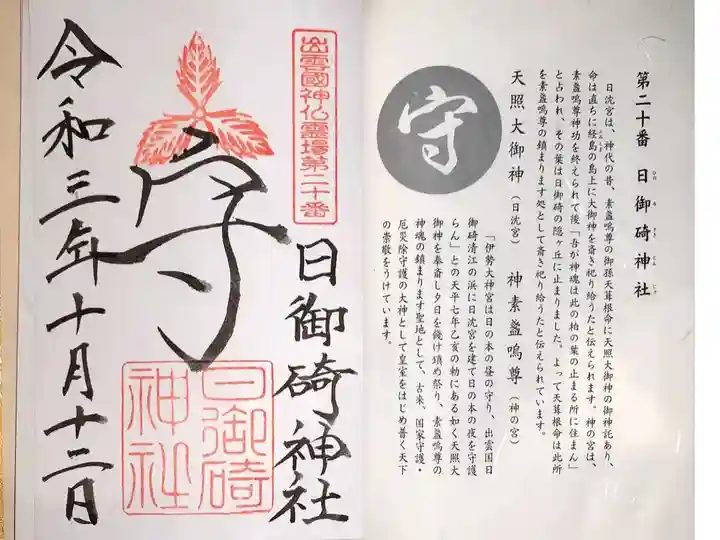 第二十番　日御碕神社
ひのみさきじんじゃ
日沈宮は、神代の昔、素盞嗚尊の御孫天葺根命に天照大御神の御神託あり、
命は直ちに経島の島上に大御神を斎き祀り給うたと伝えられます。神の宮は、
素盞嗚尊神功を終えられて後「吾が神魂は此の柏の葉の止まる所に住まん」
と占われ、その葉は日御碕の隠ヶ丘に止まりました、よって天葺根命は此所
を素盞嗚尊の鎮まります処として斎き祀り給うたと伝えられています。
天照大御神（日沈宮）　神素盞嗚尊（神の宮）
守
「伊勢大神宮は日の本の昼の守り、出雲国日
御碕清江の浜に日沈宮を建て日の本の夜を守護
らん」との天平七年乙亥の勅にある如く天照大
御神を奉斎し夕日を餞け鎮め祭り、素盞嗚尊の
神魂の鎮まります聖地として、古来、国家守護・
厄災除守護の大神として皇室をはじめ普く天下
の崇敬をうけています。
出雲國神仏霊場第二十番
日御碕神社
守
日御碕
神社
令和三年十月十二日